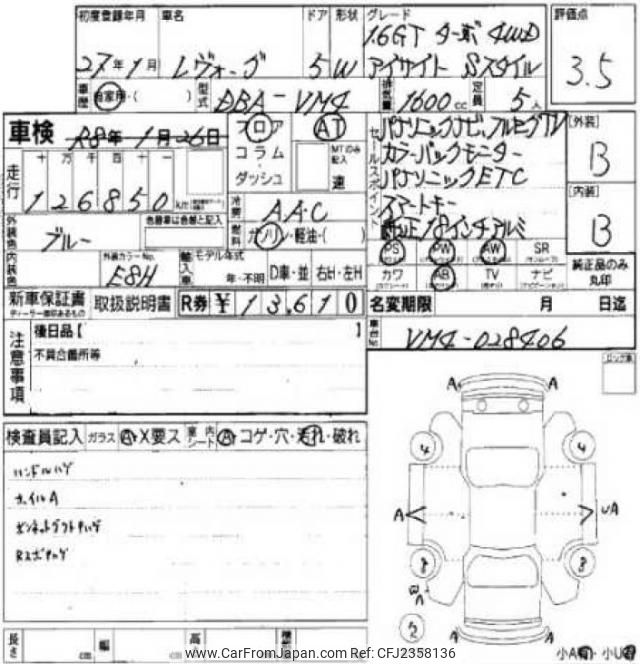 初度登録年月 車名 ドア 形状 グレード 評価点
27年1月 レヴォーグ 5 W 1.6GT ターボ 4WD
アイサイト Sスタイル
3.5
車歴 自家用・( ) 型式 DBA-VM4 排気量 1600cc 定員 5人
車検 R8年1月26日
フロア AT
コラム・ダッシュ
MTのみ記入 速
走行 十 万 千 百 十 一
126850km
冷房 AAC
燃料 ガソリン・軽油・( )
外装色 ブルー 色替車は元色も記入
内装色 外装カラーNo. E8H
輸入車 モデル年式 年・不明 D車・並 右H・左H
セールスポイント
パナソニックナビ、フルセグTV
カラーバックモニター
パナソニックETC
スマートキー
純正18インチアルミ
[外装] B
[内装] B
PS PW AW SR
カワ AB TV ナビ
純正品のみ丸印
新車保証書 取扱説明書 R券 ¥13,610
名変期限 月 日迄
車台No. VM4-028406
注意事項
後日品【 】
不具合箇所等
検査員記入 ガラス A・X要ス 室内シート A・コゲ・穴・汚れ・破れ
ハンドルハゲ
ホイルA
ボンネットダクトハゲ
A A
4 4
A UA
8 8
2
A A
長さ cm 幅 cm 高 
小A 小U
www.CarFromJapan.com Ref: CFJ2358136